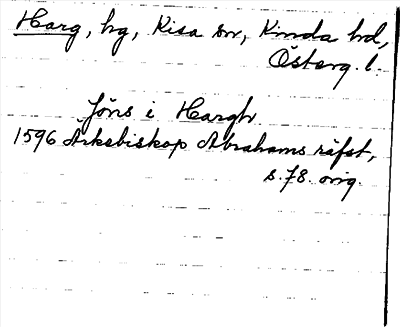 Harg, hg, Kisa sn, Kinda hd,
Österg. l.
Jöns i Hargh
1596 Ärkebiskop Abrahams räfst,
s. 78. orig.